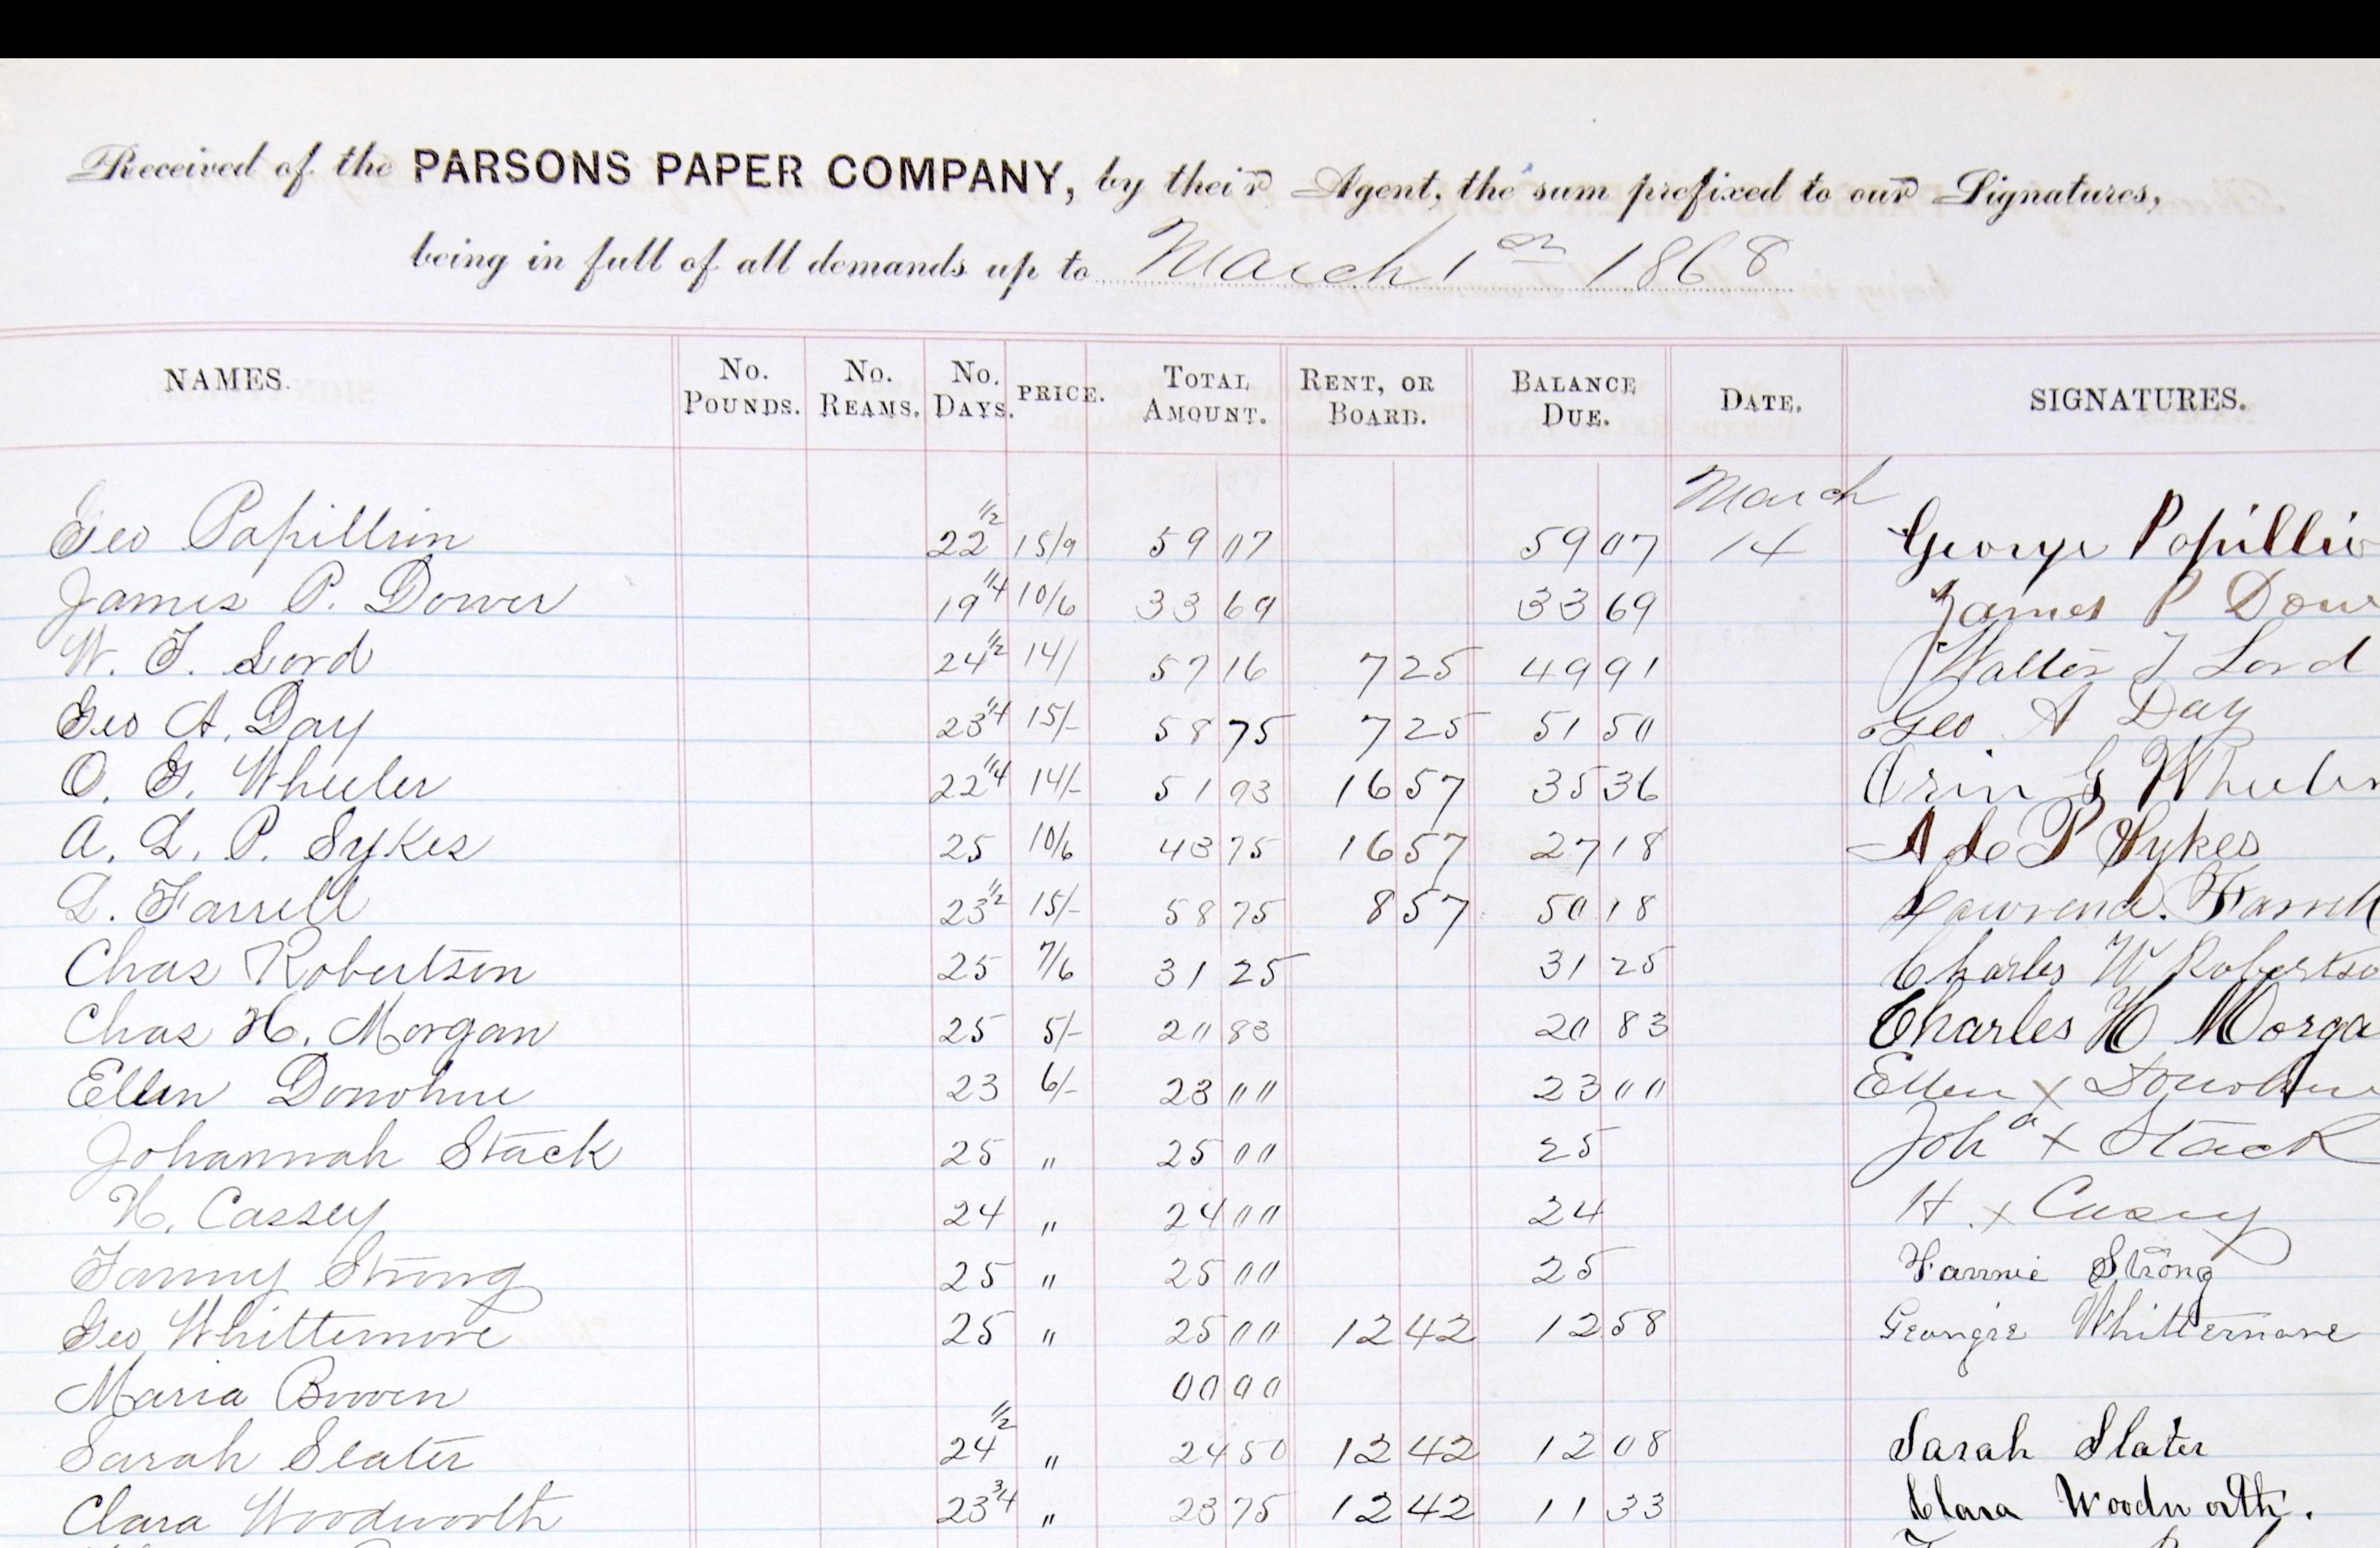 Received of the PARSONS PAPER COMPANY, by their Agent, the sum prefixed to our Signatures,
being in full of all demands up to March 1st 1868
NAMES. No. POUNDS. No. REAMS. No. DAYS. PRICE. TOTAL AMOUNT. RENT, OR BOARD. BALANCE DUE. DATE. SIGNATURES.
March
Geo Papillion 22 1/2 15/9 59 07 59 07 14 George Papillio
James P. Dower 19 1/4 10/6 33 69 33 69 James P Dow
W. F. Lord 24 1/2 14/ 57 16 7 25 49 91 Walter F Lord
Geo A. Day 23 1/4 15/- 58 75 7 25 51 50 Geo A Day
O. G. Wheeler 22 1/4 14/- 51 93 16 57 35 36 Orin G Wheeler
A. L. P. Sykes 25 10/6 43 75 16 57 27 18 A Lo P Sykes
L. Farrell 23 1/2 15/- 58 75 8 57 50 18 Lawrence. Farrell
Chas Robertson 25 7/6 31 25 31 25 Charles W Robertso
Chas H. Morgan 25 5/- 20 83 20 83 Charles H Morga
Ellen Donohue 23 6/- 23 00 23 00 Ellen x Donohue
Johannah Stack 25 " 25 00 25 Joha x Stack
H. Cassey 24 " 24 00 24 H. x Casey
Fanny Strong 25 " 25 00 25 Fannie Strong
Geo Whittemore 25 " 25 00 12 42 12 58 Georgie Whittemore
Maria Bowen 00 00
Sarah Slater 24 1/2 " 24 50 12 42 12 08 Sarah Slater
Clara Woodworth 23 3/4 " 23 75 12 42 11 33 Clara Woodworth.